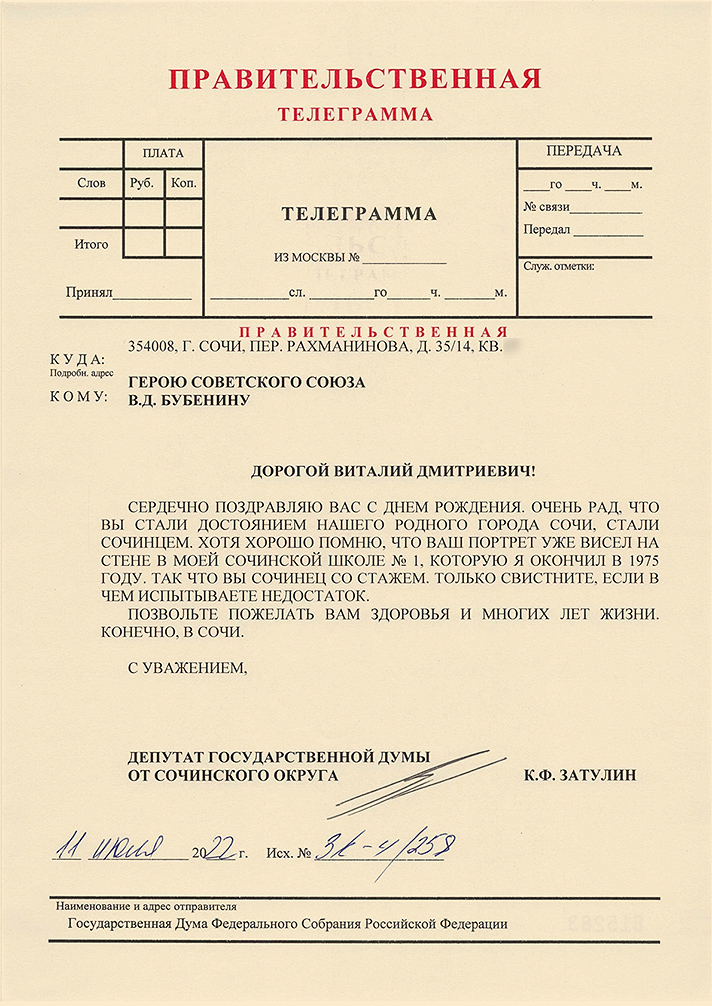 ПРАВИТЕЛЬСТВЕННАЯ
ТЕЛЕГРАММА
ПЛАТА
Слов Руб. Коп.
Итого
Принял____________
ТЕЛЕГРАММА
ИЗ МОСКВЫ № ____________
____________сл. __________го_______ч. ________м.
ПЕРЕДАЧА
____го ____ч. ____м.
№ связи___________
Передал ___________
Служ. отметки:
ПРАВИТЕЛЬСТВЕННАЯ
354008, Г. СОЧИ, ПЕР. РАХМАНИНОВА, Д. 35/14, КВ.
КУДА:
Подробн. адрес
ГЕРОЮ СОВЕТСКОГО СОЮЗА
КОМУ: В.Д. БУБЕНИНУ
ДОРОГОЙ ВИТАЛИЙ ДМИТРИЕВИЧ!
СЕРДЕЧНО ПОЗДРАВЛЯЮ ВАС С ДНЕМ РОЖДЕНИЯ. ОЧЕНЬ РАД, ЧТО
ВЫ СТАЛИ ДОСТОЯНИЕМ НАШЕГО РОДНОГО ГОРОДА СОЧИ, СТАЛИ
СОЧИНЦЕМ. ХОТЯ ХОРОШО ПОМНЮ, ЧТО ВАШ ПОРТРЕТ УЖЕ ВИСЕЛ НА
СТЕНЕ В МОЕЙ СОЧИНСКОЙ ШКОЛЕ № 1, КОТОРУЮ Я ОКОНЧИЛ В 1975
ГОДУ. ТАК ЧТО ВЫ СОЧИНЕЦ СО СТАЖЕМ. ТОЛЬКО СВИСТНИТЕ, ЕСЛИ В
ЧЕМ ИСПЫТЫВАЕТЕ НЕДОСТАТОК.
ПОЗВОЛЬТЕ ПОЖЕЛАТЬ ВАМ ЗДОРОВЬЯ И МНОГИХ ЛЕТ ЖИЗНИ.
КОНЕЧНО, В СОЧИ.
С УВАЖЕНИЕМ,
ДЕПУТАТ ГОСУДАРСТВЕННОЙ ДУМЫ
ОТ СОЧИНСКОГО ОКРУГА К.Ф. ЗАТУЛИН
11 июля 2022 г. Исх. № ЗК-4/258
Наименование и адрес отправителя
Государственная Дума Федерального Собрания Российской Федерации